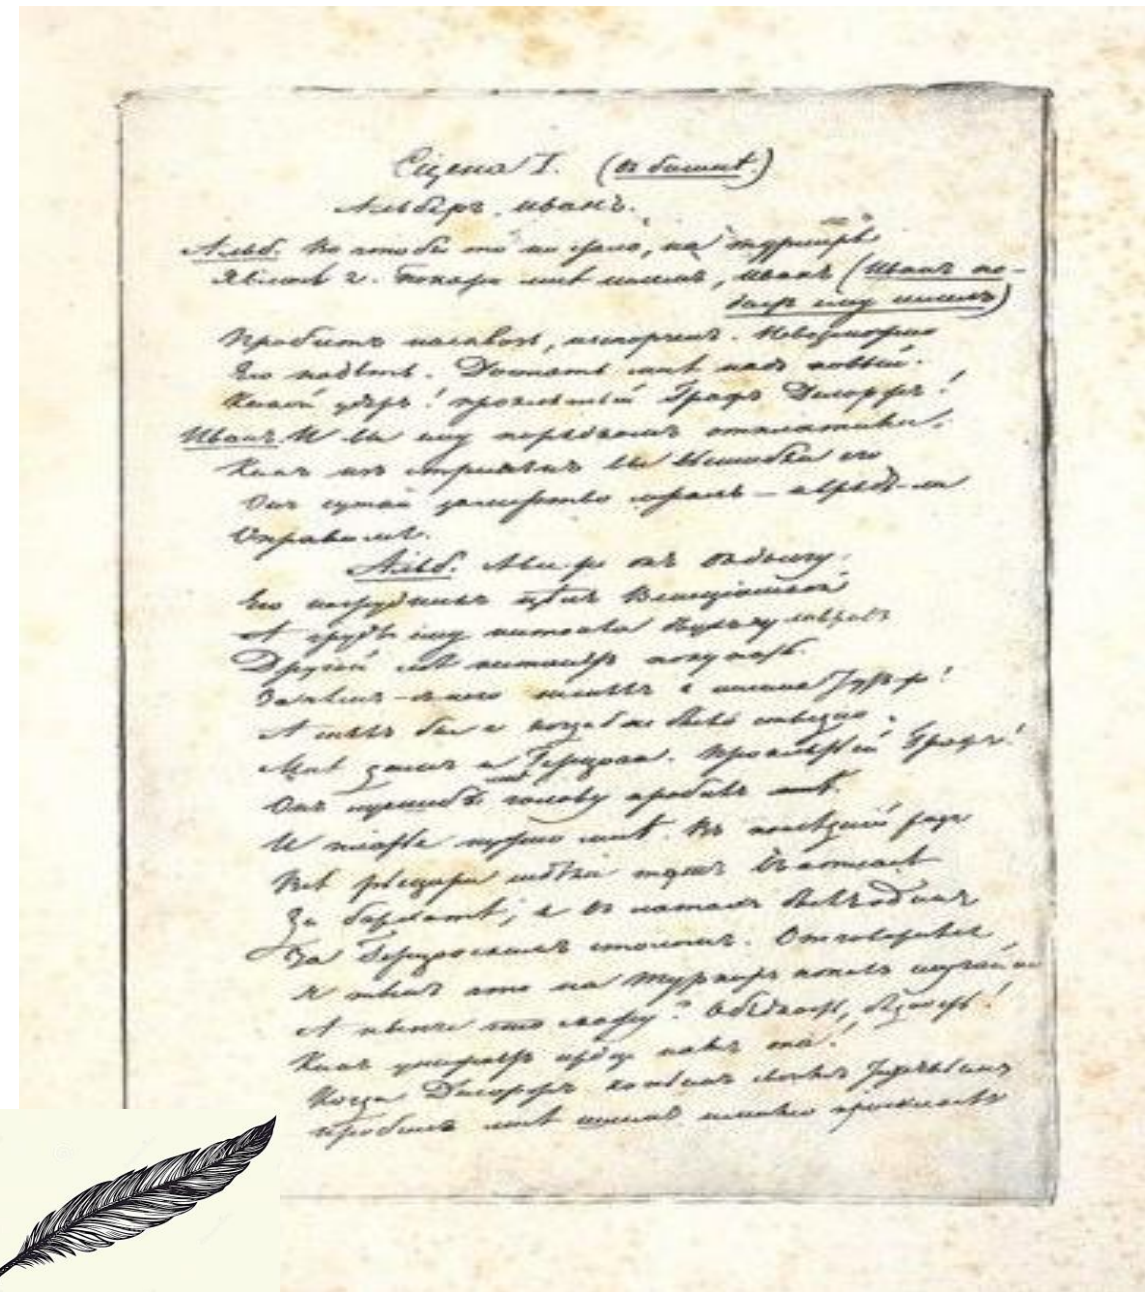 Сцена I. (въ башнѣ.)
Альберъ, Иванъ.
Альб. Во что бы то ни стало, на турнирѣ
Явлюсь я. Покажи мнѣ шлемъ, Иванъ (Иванъ по-
даетъ ему шлемъ)
Пробитъ насквозь, испорченъ. Невозможно
Его надѣть. Достать мнѣ надо новый.
Какой ударъ! проклятый Графъ Делоржъ!
Иванъ И вы ему порядкомъ отплатили.
Какъ изъ стремянъ вы вышибли его
Онъ сутки замертво лежалъ — и врядъ-ли
Оправился.
Альб.
Его нагрудникъ цѣлъ Венецiанской
А грудь ему
Другой не станетъ покупать.
Зачѣмъ с него я шлема тутъ же!
А снялъ бы я когдабъ не было стыдно
Мнѣ и Герцога. Проклятый Графъ!
Онъ лучшебъ мнѣ голову пробилъ
И платье нужно мнѣ. Въ послѣдний разъ
Всѣ рыцари сидѣли тутъ въ атласѣ
Да бархатѣ; я въ латахъ былъ одинъ
За Герцогскимъ столомъ. Отговорился
Я тѣмъ что на турниръ попалъ случайно
А нынче что скажу? О бѣдность, бѣдность!
Какъ унижаетъ сердце намъ она!
Когда Делоржъ копьемъ своимъ тяжелымъ
Пробилъ мнѣ шлемъ и мимо проскакалъ